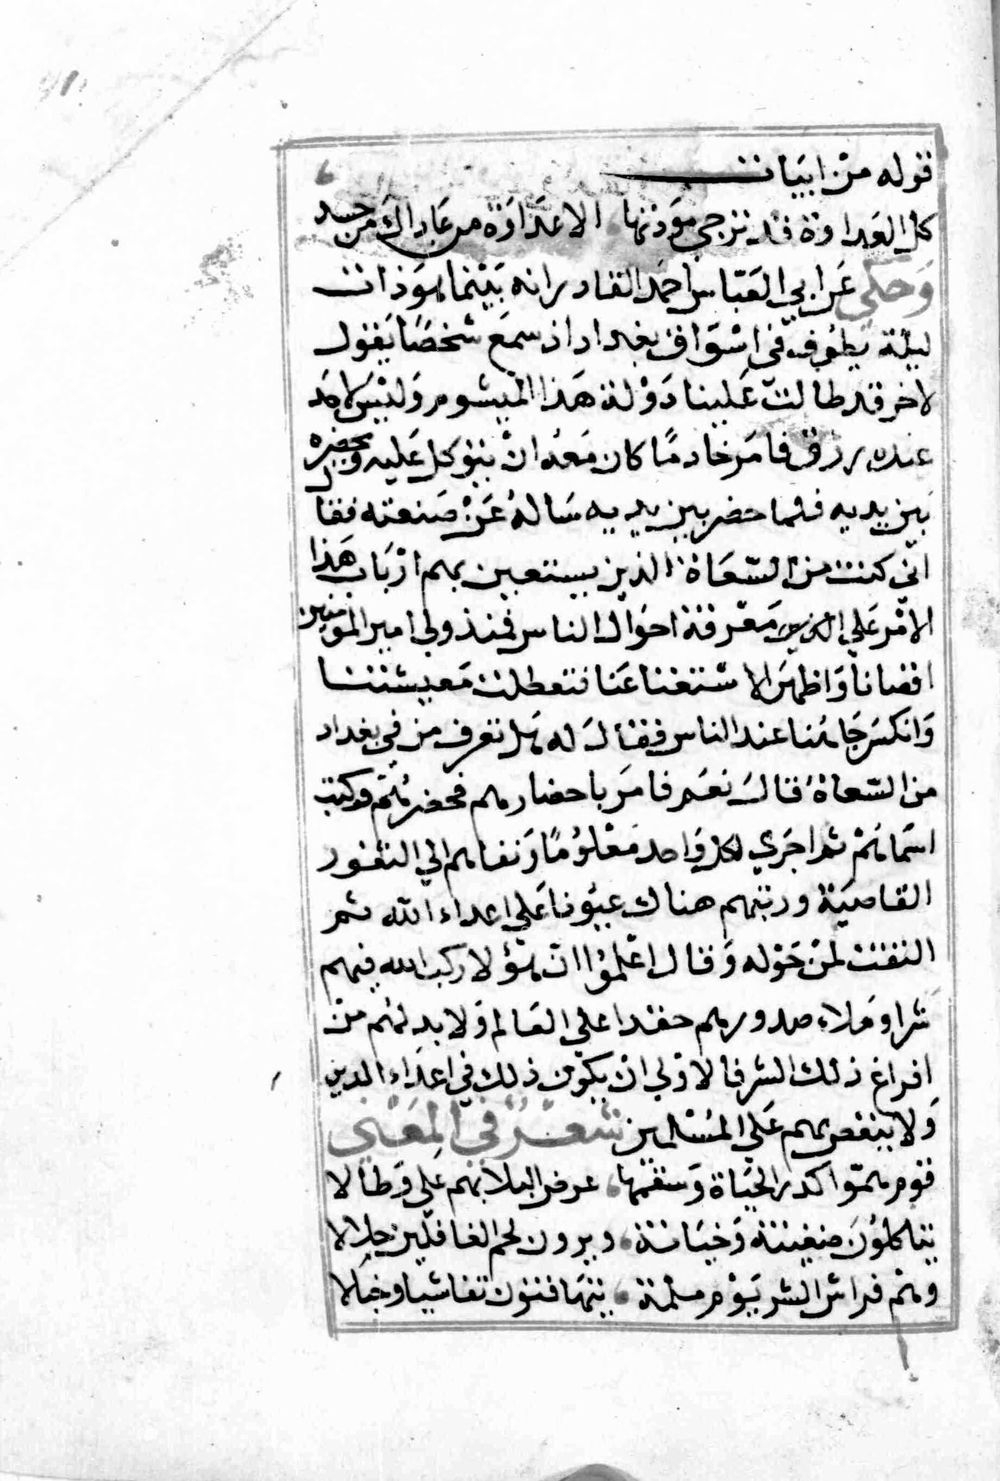 قوله من ابيات
كل العداوة قد ترجي مودتها الا عداوة من عاداك من حسد
وحكي عن ابي العباس احمد القادر انه بينما هو ذات
ليلة يطوف في اسواق بغداد اذ سمع شخصا يقول
لاخر قد طالت علينا دولة هذا الميشوم وليس لاحد
عنده رزق فامر خادما كان معه ان يتوكل عليه ويحضره
بين يديه فلما حضر بين يديه ساله عن صنعته فقال
اني كنت من السعاة الذين يستعين بهم ارباب هذا
الامر علي معرفة احوال الناس فمنذ ولي امير المومنين
اقصانا واظهر الاستغنا عنا فتعطلت معيشتنا
وانكسر جاهنا عند الناس فقال له هل تعرف من في بغداد
من السعاة قال نعم فامر باحضارهم فحضر وكتب
اسماهم ثم اجري لكل واحد معلوما ونفاهم الي الثغور
القاصية ورتبهم هناك عيونا علي اعداء الله ثم
التفت لمن حوله وقال اعلموا ان هؤلا ركب الله فيهم
شرا وملاء صدورهم حقدا علي العالم ولا بد لهم من
افراغ ذلك الشر فالاولي ان يكون ذلك في اعداء الدين
ولا ينغص بهم علي المسلمين شعر في المعني
قوم همو اكدر الحياة وسقمها عرض البلا بهم علي وطالا
يتاكلون ضغينة وخيانة ويرون لحم الغافلين حلالا
وهم فراش الشر يوم ملمة يتهافتون تغاشيا وخبالا